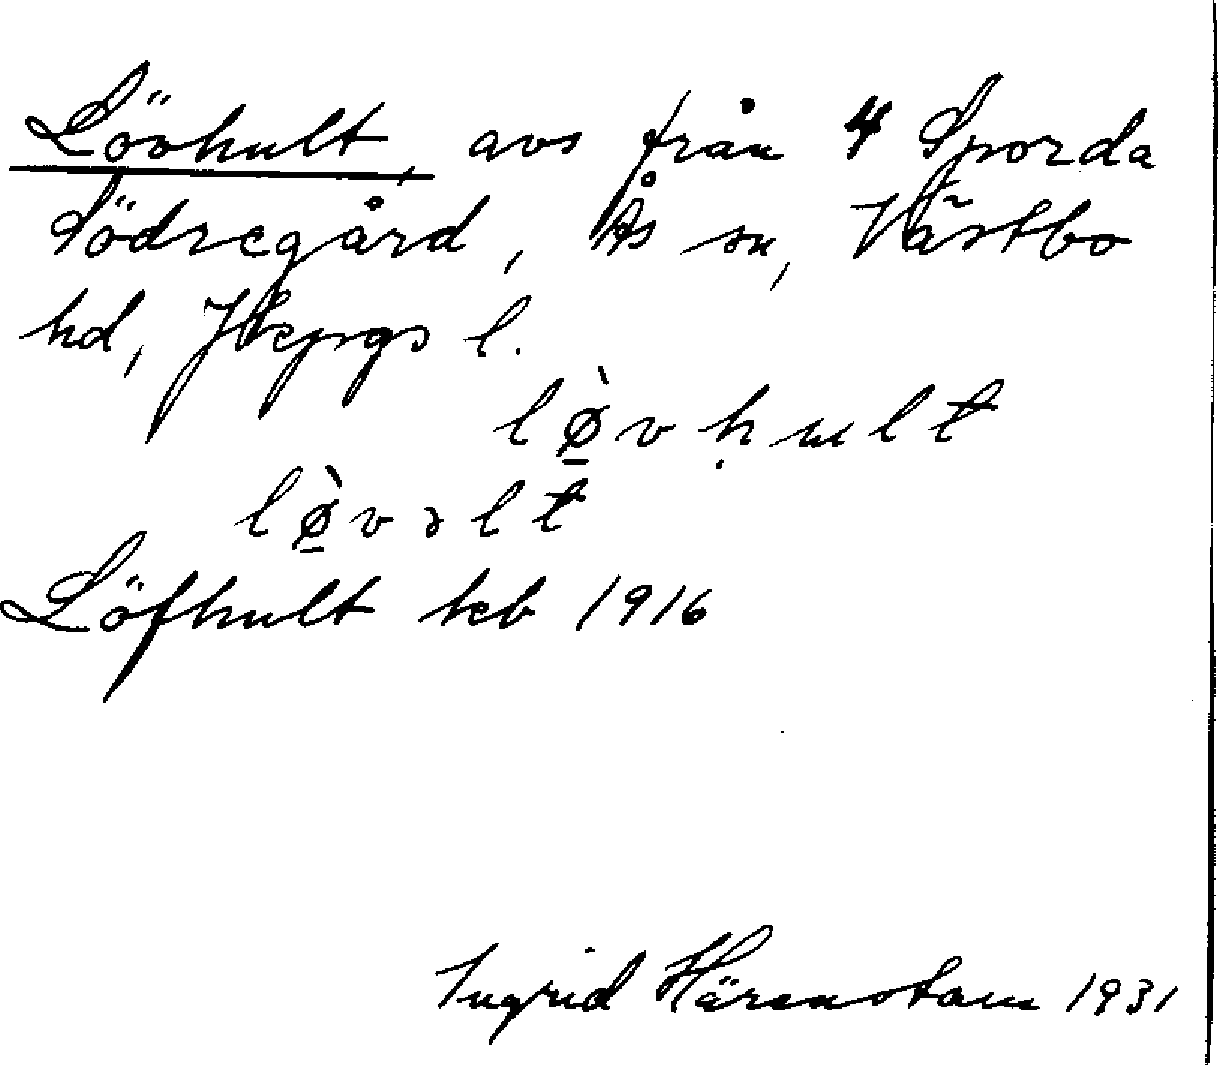 Lövhult, avs från 4 Sporda
Södregård, Ås sn, Västbo
hd, Jkpgs l.
lø̠̀vḥult
lø̠̀vəlt
Löfhult heb 1916
Ingrid Härenstam 1931